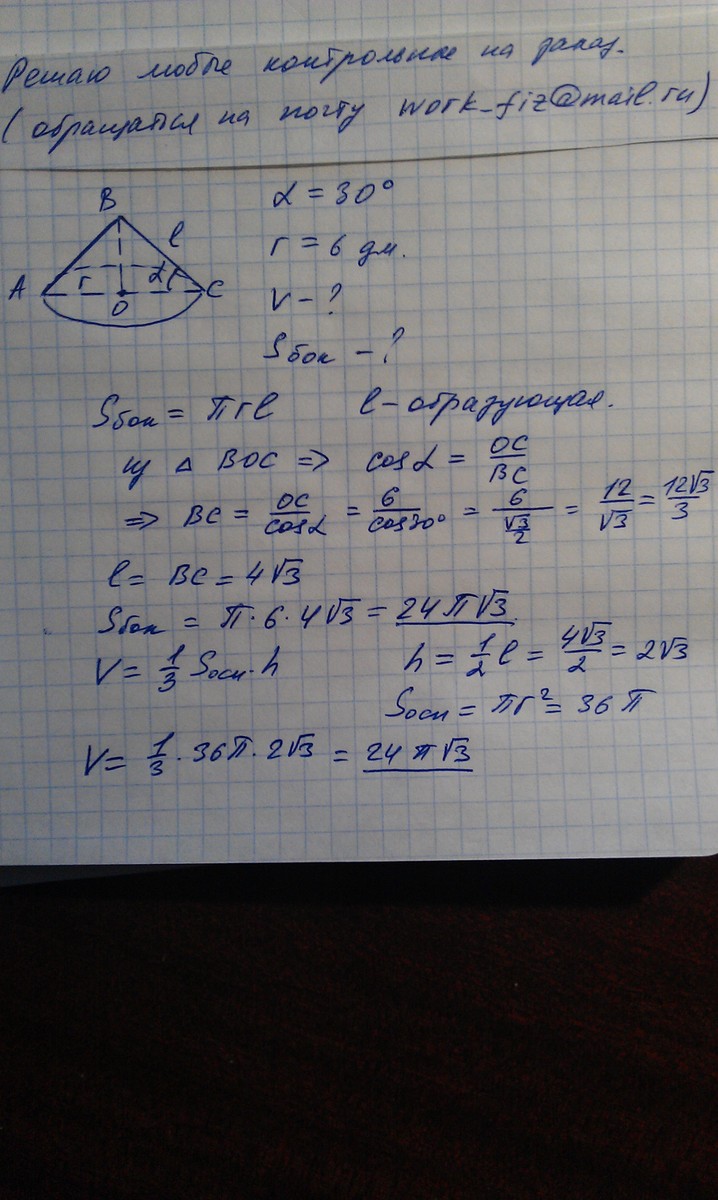 Решаю любые контрольные на заказ.
(обращаться на почту work_fiz@mail.ru)
B
l
A
r
α
C
O
α = 30°
r = 6 дм.
V - ?
Sбок - ?
Sбок = πrl l - образующая.
из △ BOC ⇒ cosα = OC/BC
⇒ BC = OC/cosα = 6/cos30° = 6/(√3/2) = 12/√3 = 12√3/3
l = BC = 4√3
Sбок = π · 6 · 4√3 = 24π√3.
V = 1/3 Sосн · h h = 1/2 l = 4√3/2 = 2√3
Sосн = πr² = 36π
V = 1/3 · 36π · 2√3 = 24π√3